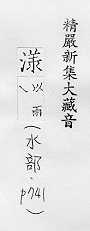 精嚴新集大藏音
漾
以雨
(水部·p741)